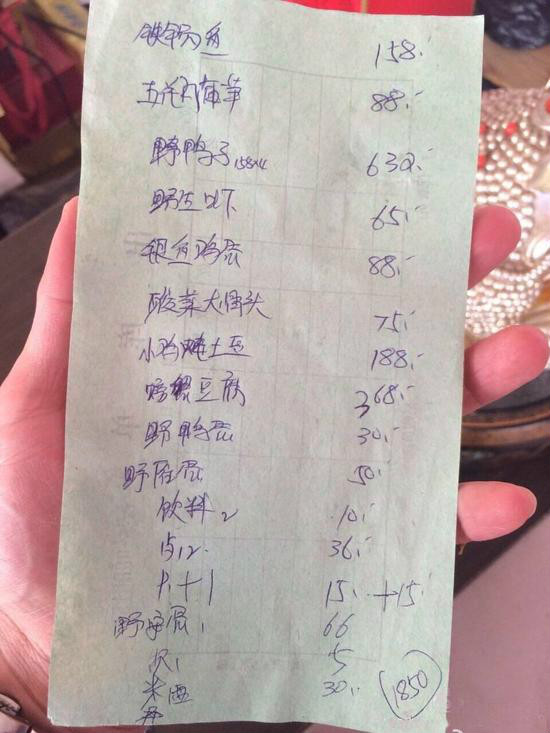 铁锅鱼 158.-
五花肉 88.-
野鸭子 158×4 632.-
野生虾 65.-
银鱼鸡蛋 88.-
酸菜大骨头 75.-
小鸡炖土豆 188.-
螃蟹豆腐 368.-
野鸭蛋 30.-
野 蛋 50.-
饮料2 10.-
12. 36.-
1+1 15.+15.-
野 蛋1 66
1 5
米面 30.- 1850